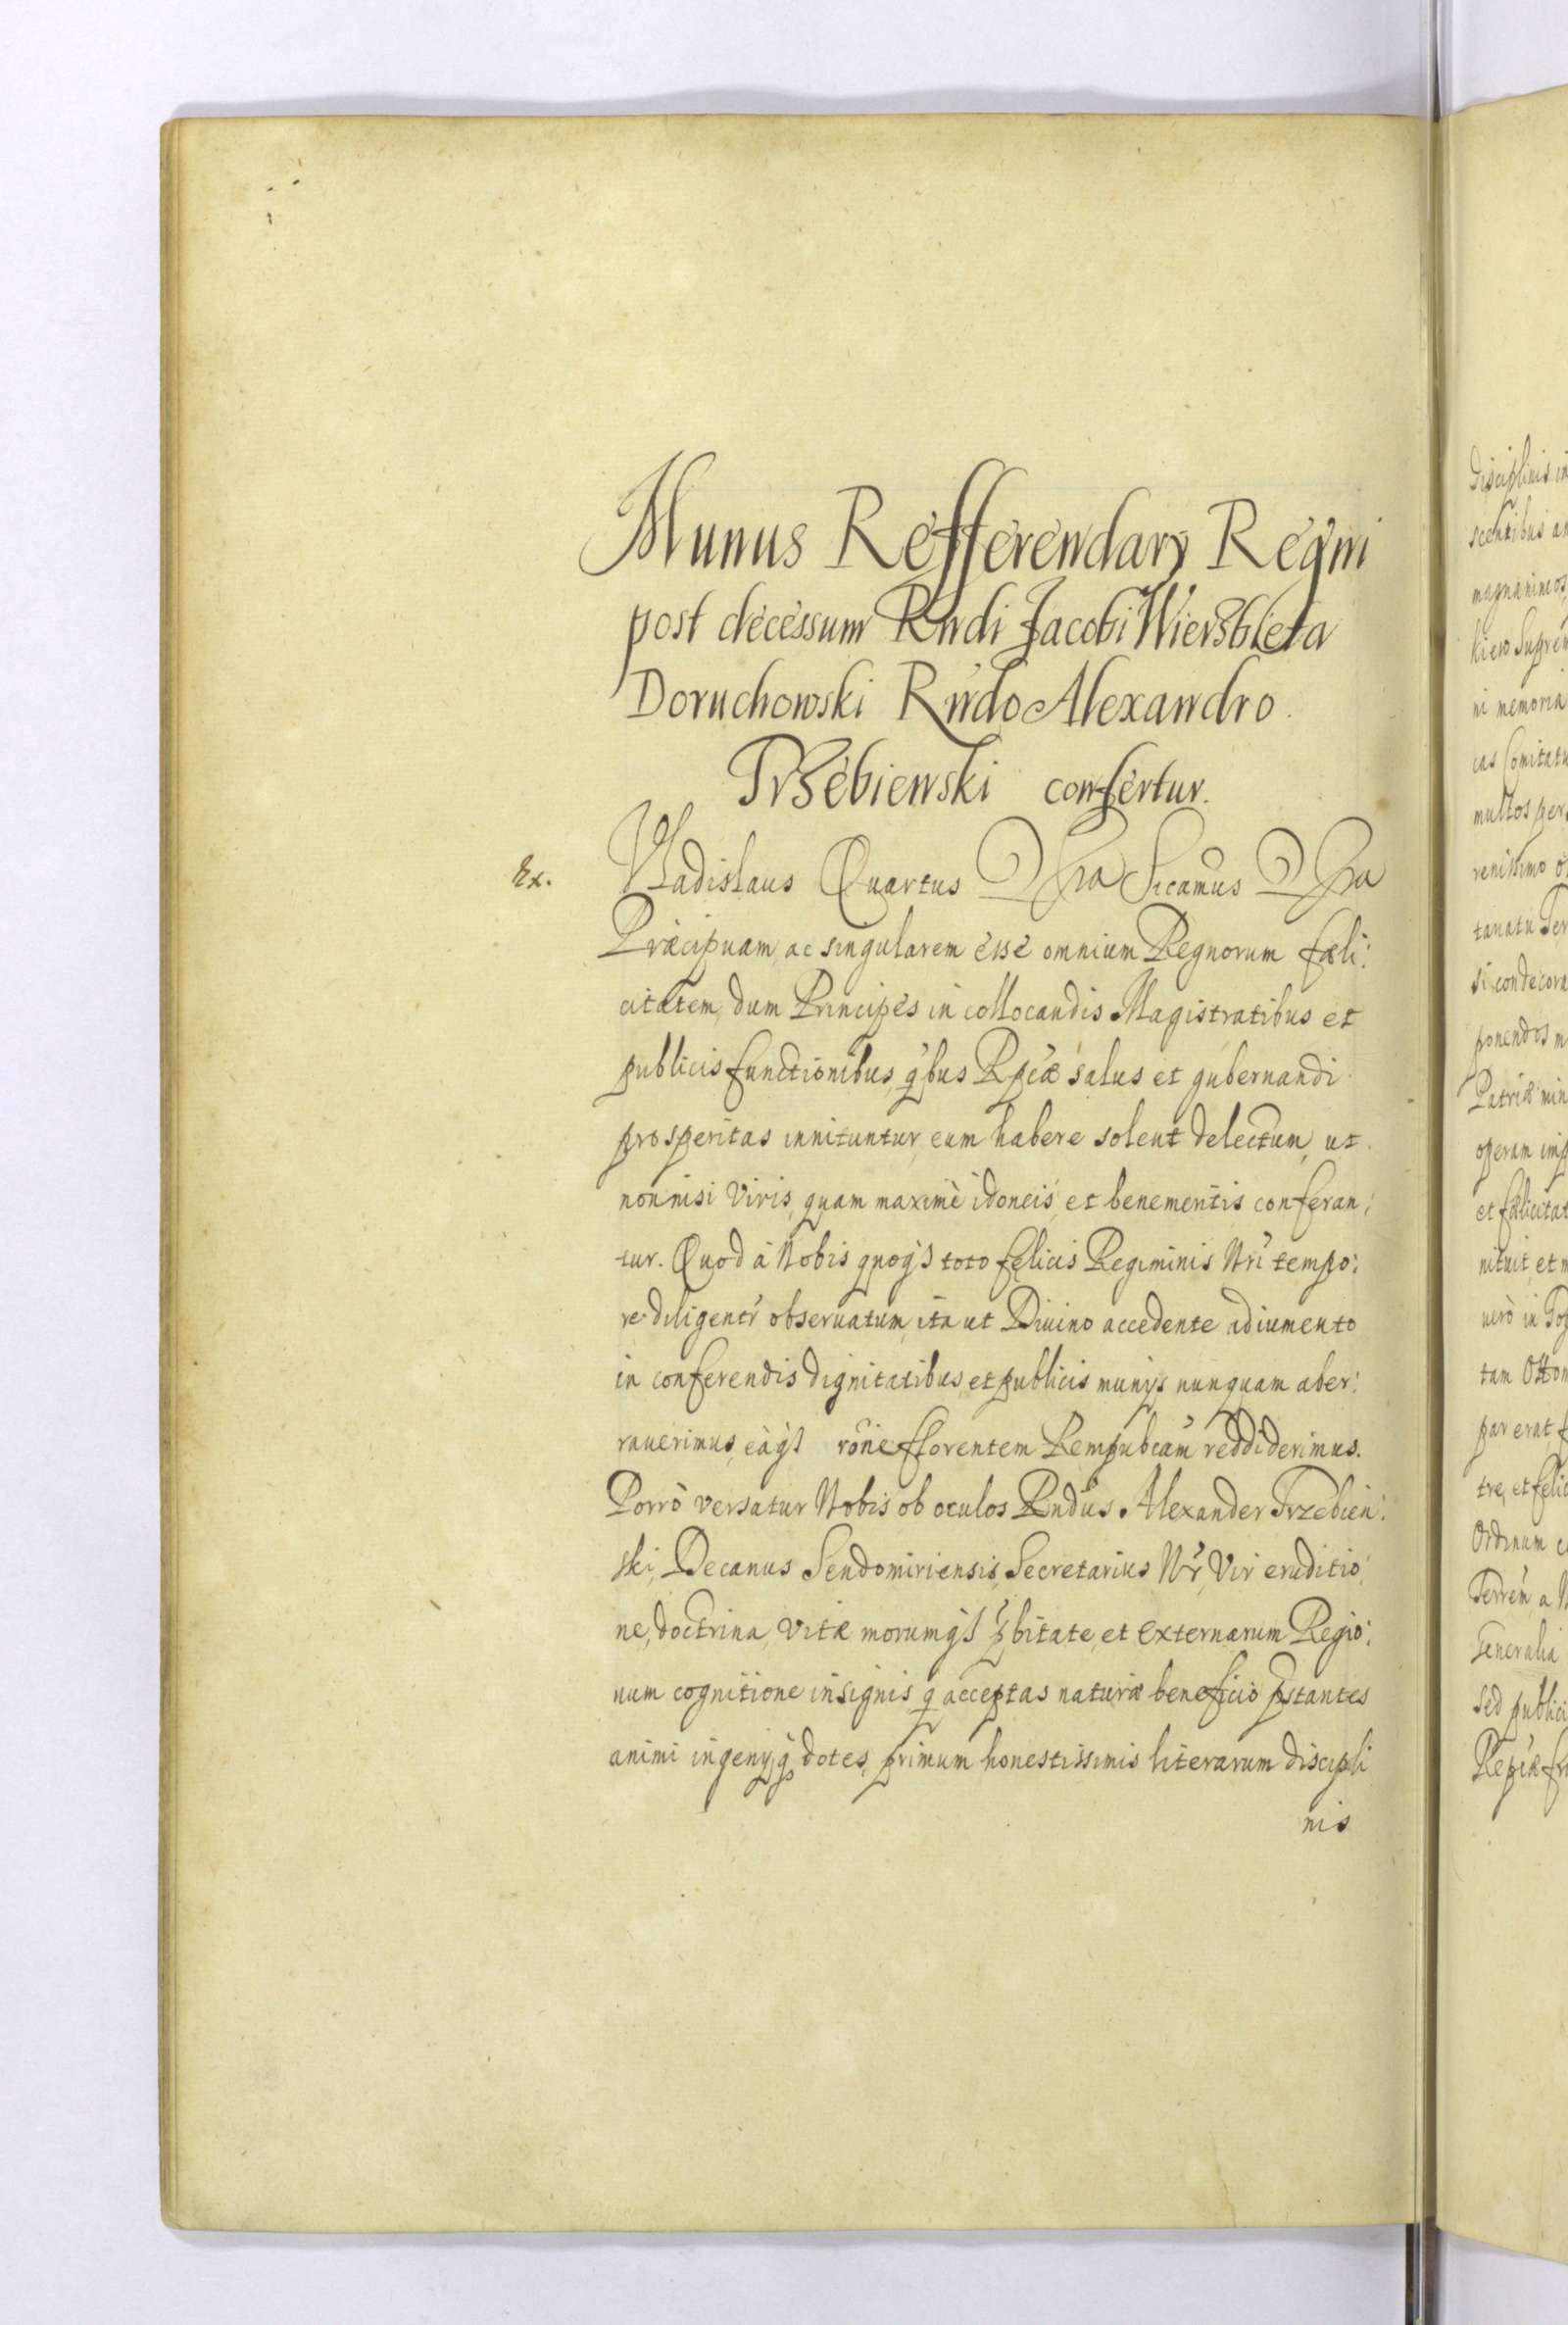 Munus Refferendarÿ Regni
post decessum Rndi Jacobi Wierzbieta
Doruchowski Rndo Alexandro
Trzebienski confertur.
Ex.
Vladislaus Quartus Dei Gra Sicamus Dei Gra
Præcipuam, ac singularem esse omnium Regnorum fæli:
citatem, dum Principes in collocandis Magistratibus et
publicis functionibus, qbus Rpcæ salus et gubernandi
prosperitas innituntur, eum habere solent delectum, ut
nonnisi Viris, quam maximè idoneis, et benemeritis conferan:
tur. Quod à Nobis quoqs toto felicis Regiminis Nri tempo:
re diligentr obseruatum, ita ut Diuino accedente adiumento
in conferendis dignitatibus, et publicis munijs nunquam aber:
rauerimus, eàqs rõne florentem Rempubcam reddiderimus.
Porrò versatur Nobis ob oculos Rndus Alexander Trzebien:
ski, Decanus Sendomiriensis, Secretarius Nr, Vir eruditio:
ne, doctrina, vitæ morumqs pbitate, et externarum Regio:
num cognitione insignis q acceptas naturæ beneficio pstantes
animi ingenyqs dotes, primum honestissimis literarum discipli
nis
Disciplinis
magnanimos,
ni memoria
multos per
renissimo
tanatu
ponendos
Patriæ
operam
nituit, et
uerò in
tam
par erat,
tre, et
Ordinum
Generalia
sed publici